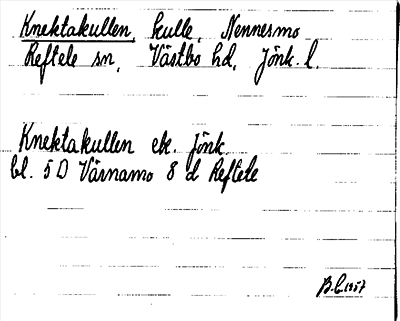 Knektakullen, kulle, Nennesmo
Reftele sn, Västbo hd, Jönk. l.
Knektakullen ek. Jönk.
bl. 5 D Värnamo 8 d Reftele